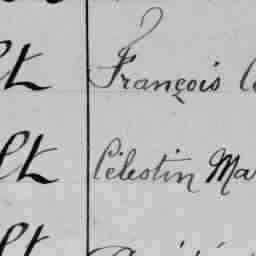 lt François
lt Célestin Ma
lt